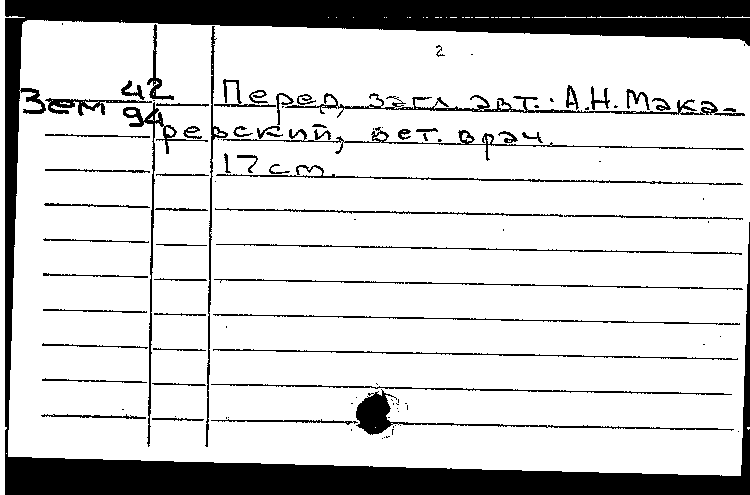 2
42 Перед загл. авт.: А.Н. Мака-
Зем 94 ревский, вет. врач.
17 см.